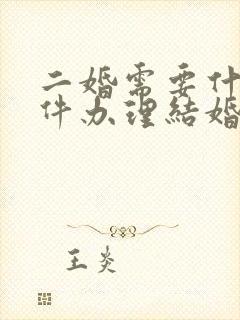 二婚需要什
件办理结婚
王炎